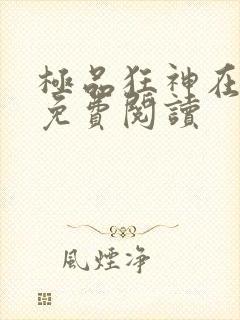 極品狂神在
免費閱讀
風煙净